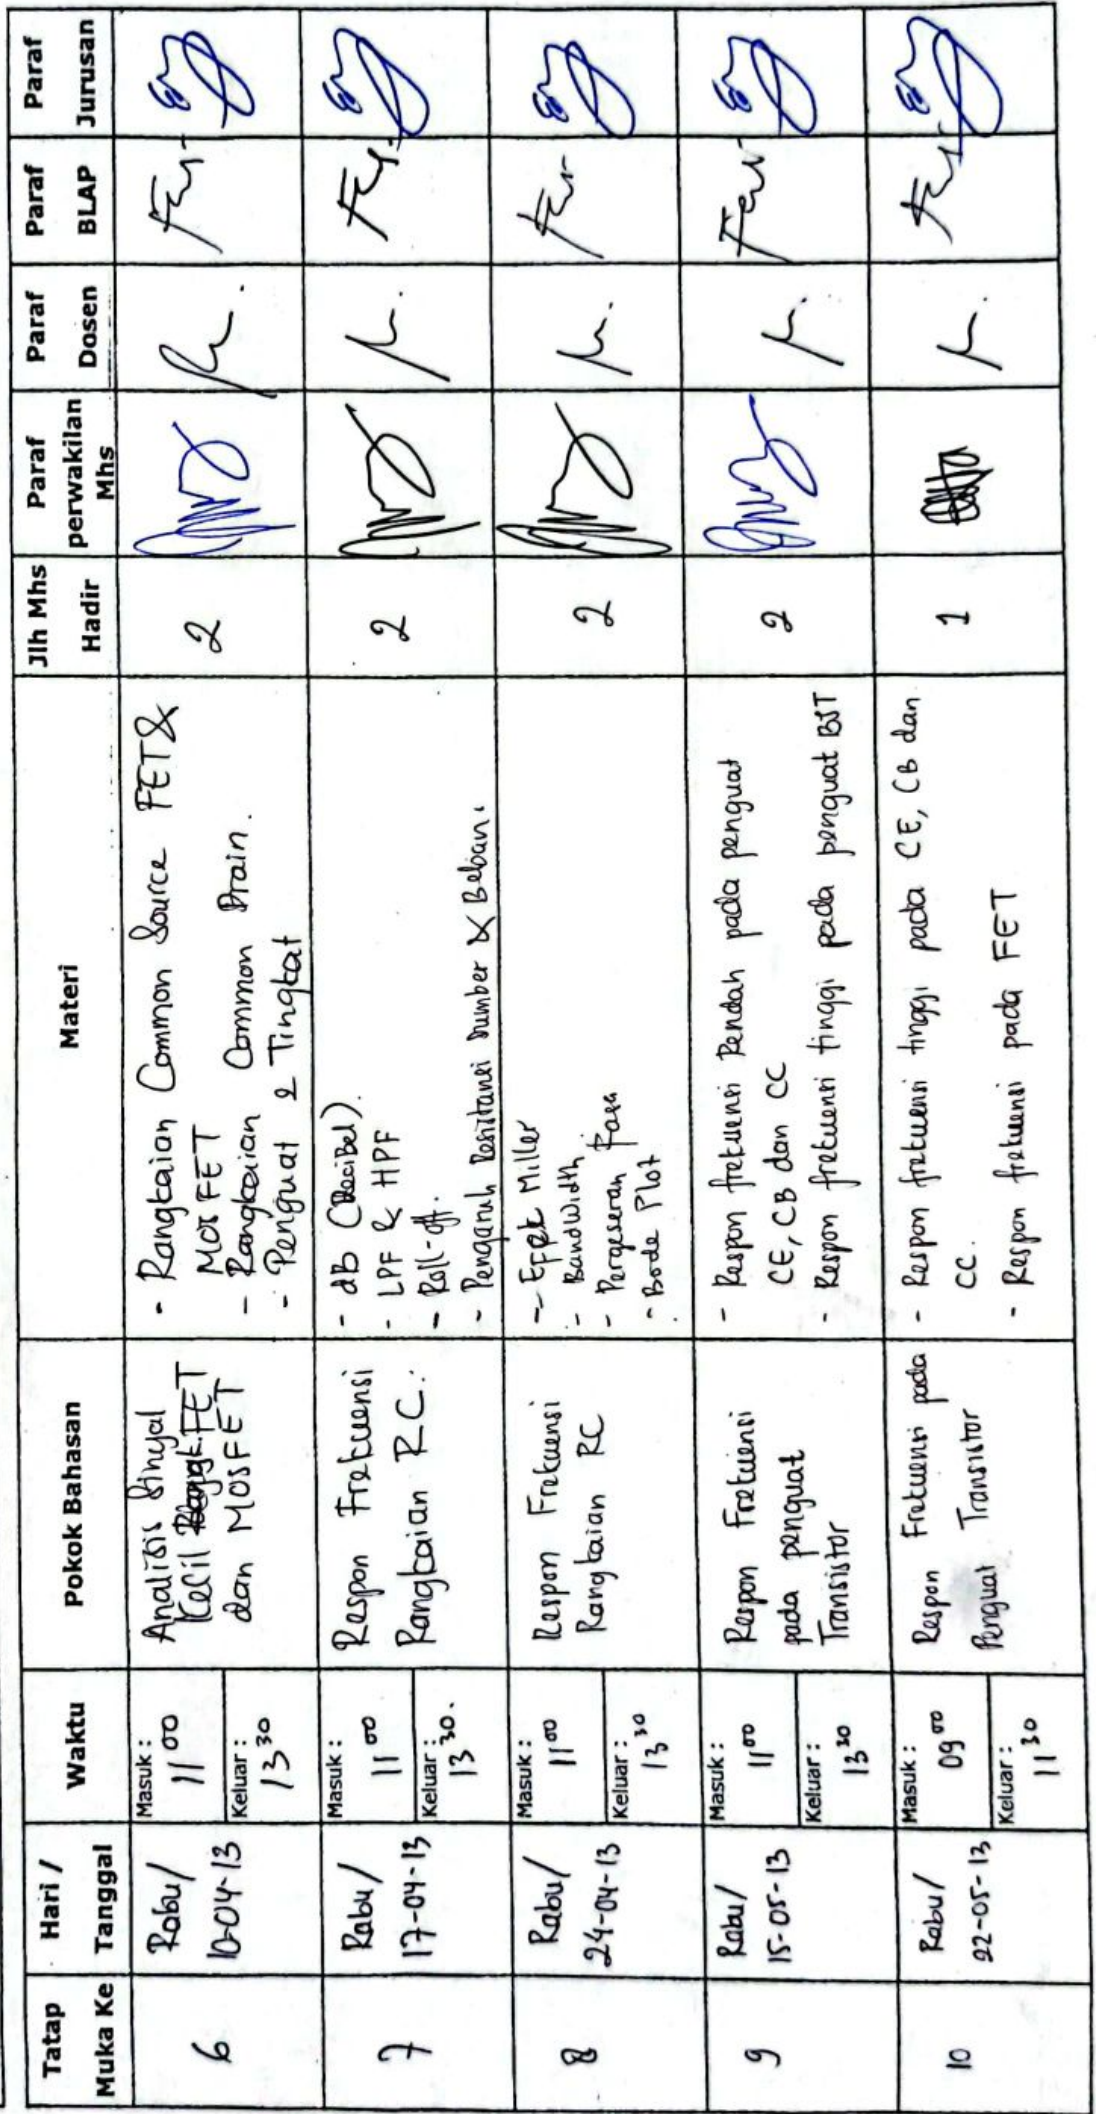 Tatap Muka Ke
Hari / Tanggal
Waktu
Pokok Bahasan
Materi
Jlh Mhs Hadir
Paraf perwakilan Mhs
Paraf Dosen
Paraf BLAP
Paraf Jurusan
6
Rabu/
10-04-13
Masuk :
11 00
Keluar :
13 30
Analisis Sinyal
Kecil FET
dan MOSFET
- Rangkaian Common Source FET &
MOSFET
- Rangkaian Common Drain.
- Penguat 2 Tingkat
2
7
Rabu/
17-04-13
Masuk :
11 00
Keluar :
13 30.
Respon Frekuensi
Rangkaian RC.
- dB (Decibel).
- LPF & HPF
- Roll-off.
- Pengaruh Resistansi Sumber & Beban.
2
8
Rabu/
24-04-13
Masuk :
11 00
Keluar :
13 30
Respon Frekuensi
Rangkaian RC
- Efek Miller
- Bandwidth
- Pergeseran Fasa
- Bode Plot
2
9
Rabu/
15-05-13
Masuk :
11 00
Keluar :
13 30
Respon Frekuensi
pada penguat
Transistor
- Respon frekuensi Rendah pada penguat
CE, CB dan CC
- Respon frekuensi tinggi pada penguat BJT
2
10
Rabu/
22-05-13
Masuk :
09 00
Keluar :
11 30
Respon Frekuensi pada
Penguat Transistor
- Respon frekuensi tinggi pada CE, CB dan
CC.
- Respon frekuensi pada FET
1